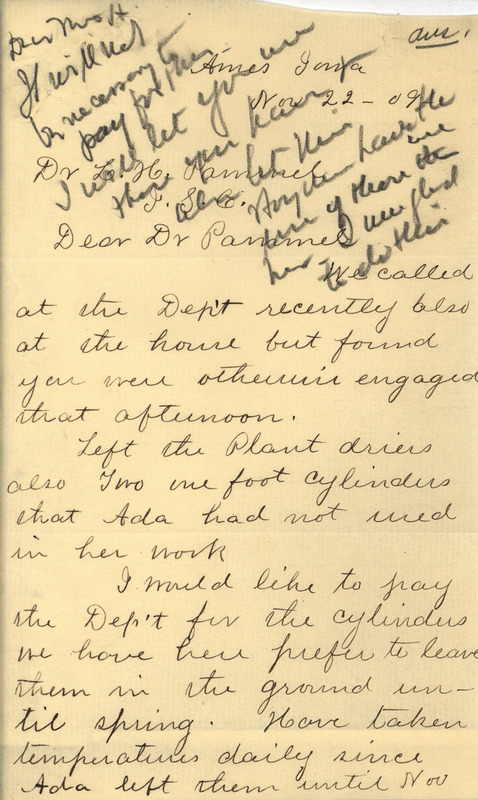 ans.
Dear Miss H.
It will not
be necessary to
pay for them
I will let you use
those you have
also let him
have the
use of them
I am glad
to do this
Ames Iowa
Nov 22 - 09
Dr L. H. Pammel
I. S. C.
Dear Dr Pammel
We called
at the Dep't recently also
at the house but found
you were otherwise engaged
that afternoon.
Left the Plant driers
also Two one foot cylinders
that Ada had not used
in her work
I would like to pay
the Dep't for the cylinders
we have here prefer to leave
them in the ground un-
til spring. Have taken
temperatures daily since
Ada left them until Nov